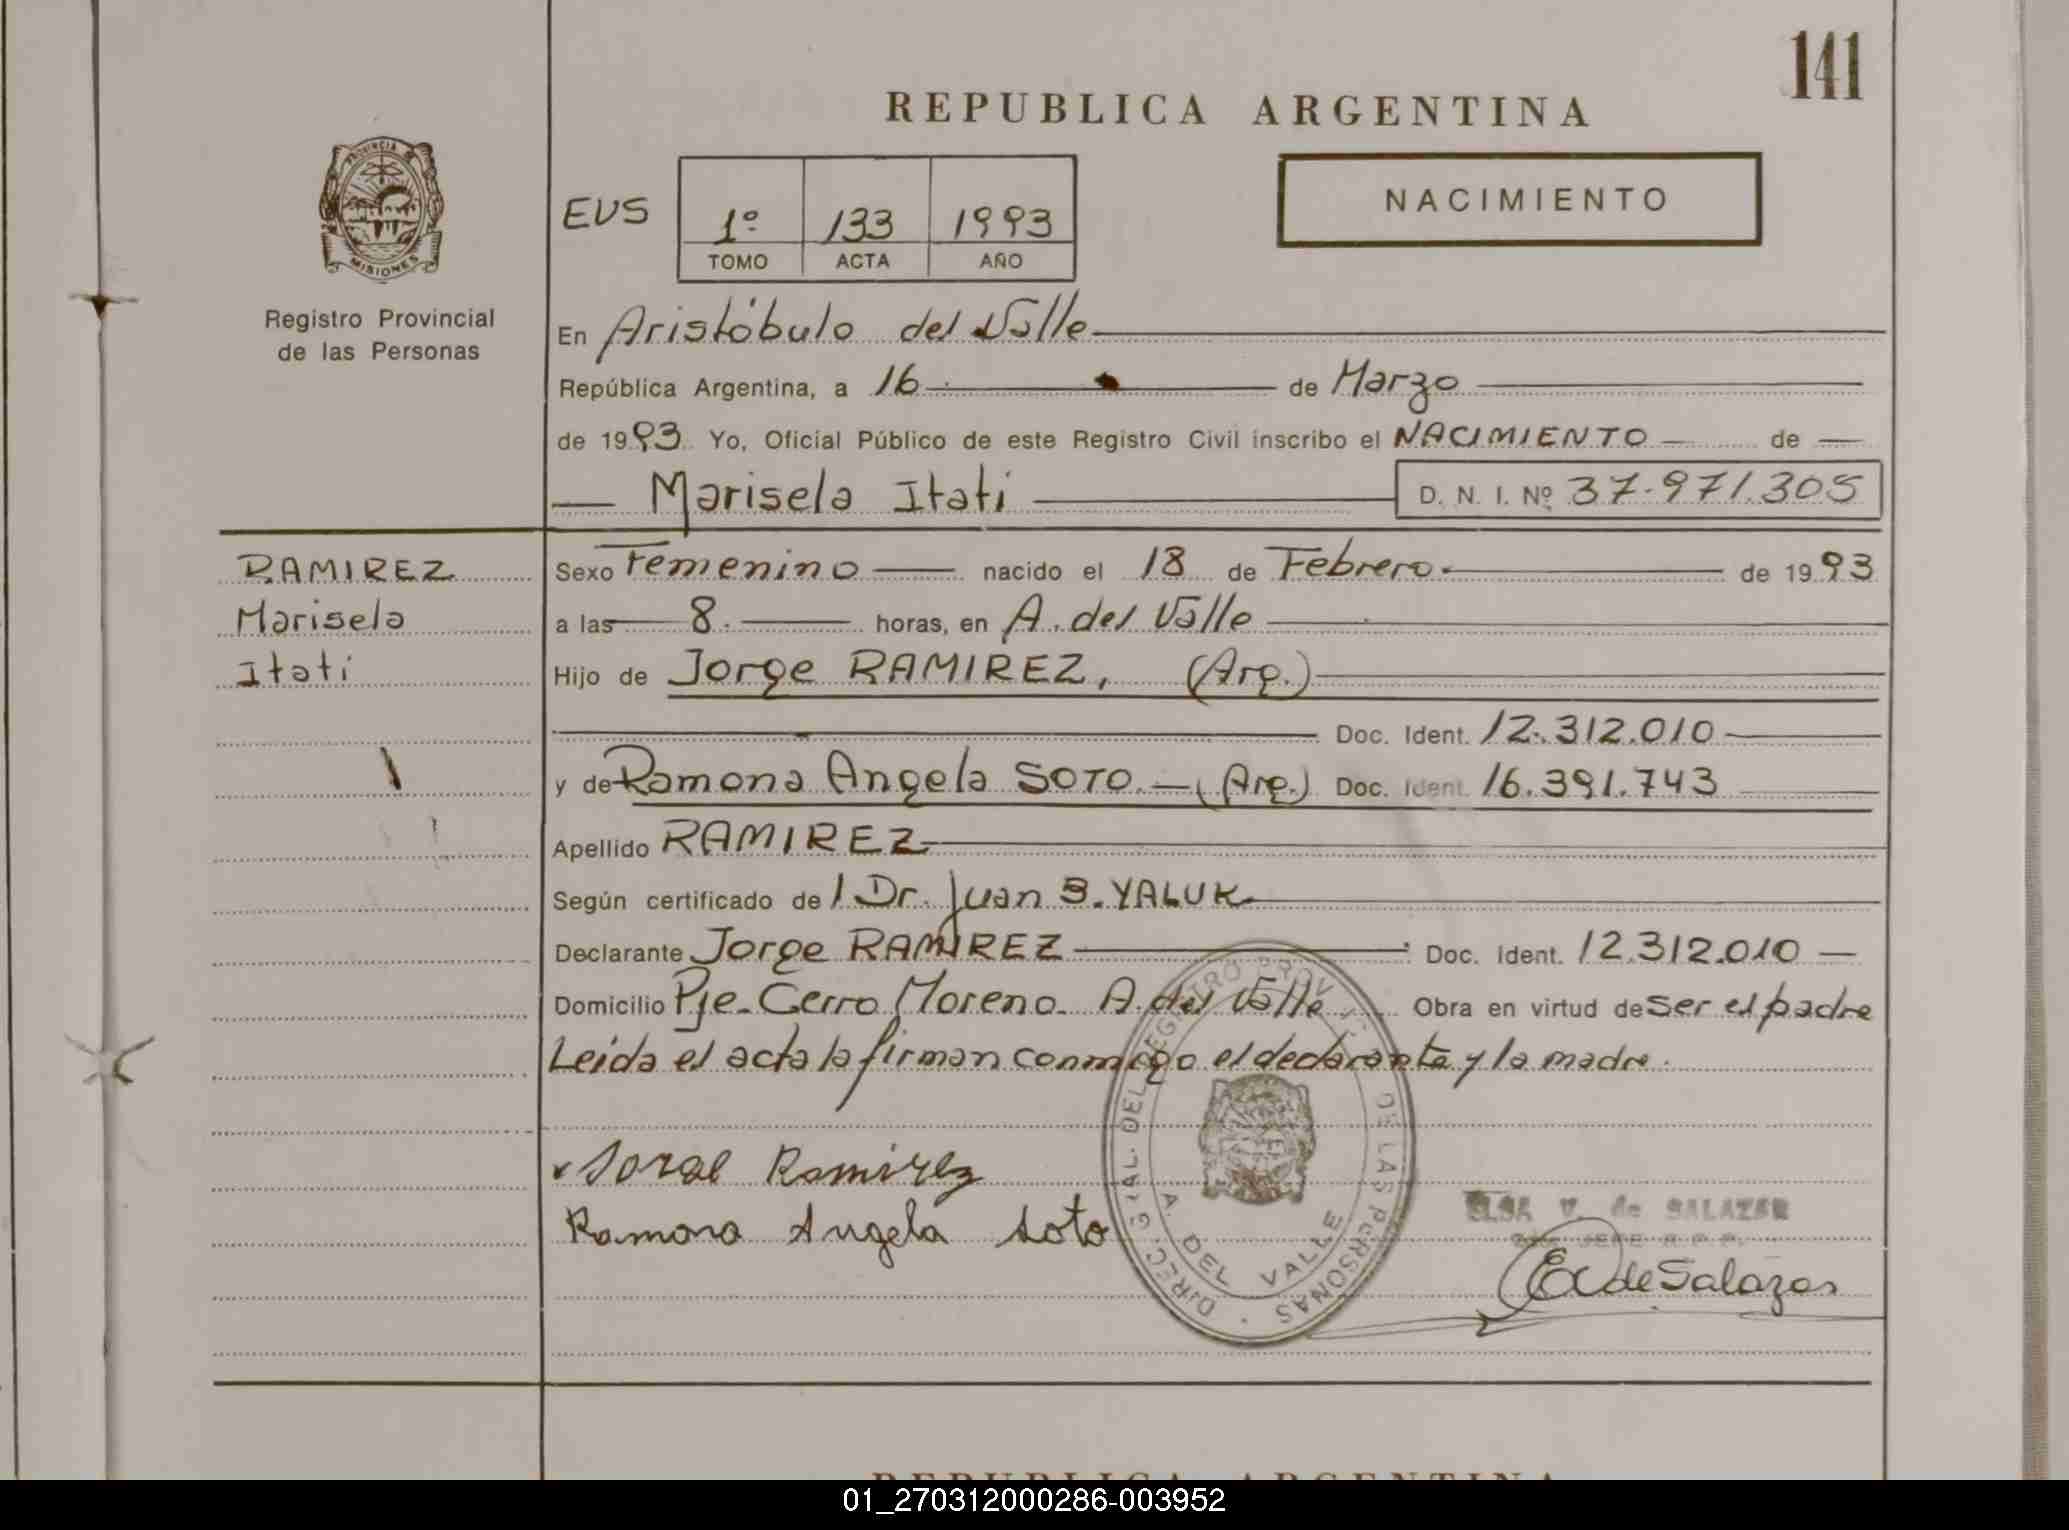 141
REPUBLICA ARGENTINA
NACIMIENTO
EVS 1º 133 1993
TOMO ACTA AÑO
PROVINCIA DE
MISIONES
Registro Provincial
de las Personas
En Aristóbulo del Valle
República Argentina, a 16 de Marzo
de 1993 Yo, Oficial Público de este Registro Civil inscribo el NACIMIENTO de
Marisela Itati D. N. I. Nº 37.971.305
RAMIREZ
Marisela
Itati
Sexo Femenino nacido el 18 de Febrero de 1993
a las 8. horas, en A. del Valle
Hijo de Jorge RAMIREZ, (Arg.)
Doc. Ident. 12.312.010
y de Ramona Angela SOTO.- (Arg.) Doc. Ident. 16.391.743
Apellido RAMIREZ
Según certificado de l Dr. Juan B. YALUK
Declarante Jorge RAMIREZ Doc. Ident. 12.312.010
Domicilio Pje. Cerro Moreno. A. del Valle Obra en virtud de ser el padre
Leida el acta la firman conmigo el declarante y la madre.
Jorge Ramirez
Ramona Angela Soto
DIREC. GRAL. DEL REGISTRO PROV. DE LAS PERSONAS
A. DEL VALLE
ELSA V. de SALAZAR
JEFE R.P.P.
E V de Salazar
REPUBLICA ARGENTINA
01_270312000286-003952